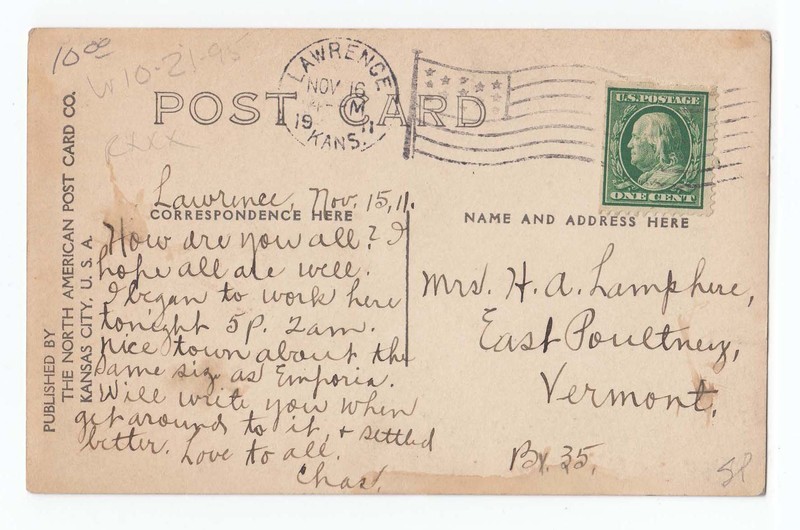 10 00
W10-21-95
RXXX
LAWRENCE
NOV 16
M
19 11
KANS.
POST CARD
U.S. POSTAGE
ONE CENT
Lawrence, Nov. 15, 11.
CORRESPONDENCE HERE
How are you all? I
hope all are well.
I began to work here
tonight 5 P. 2am.
nice town about the
same siz as Emporia.
Will write you when
get around to it, & settled
better. Love to all.
Chas.
NAME AND ADDRESS HERE
Mrs. H. A. Lamphere,
East Poultney,
Vermont.
Bx. 35.
PUBLISHED BY
THE NORTH AMERICAN POST CARD CO.
KANSAS CITY, U. S. A.